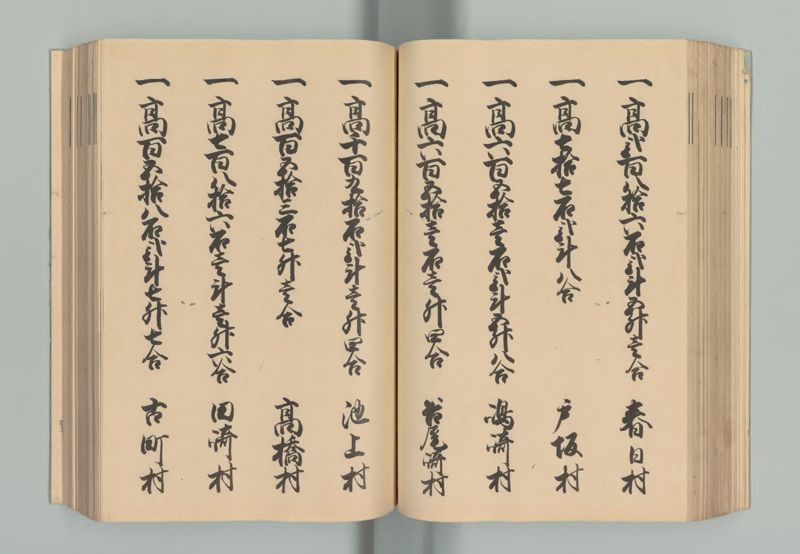 一高弐百八拾六石弐斗五升壱合 春日村
一高七拾七石弐斗八合 戸坂村
一高六百五拾壱石弐斗五升八合 嶋崎村
一高六百五拾壱石壱升四合 谷尾崎村
一高千百九拾石弐斗壱升四合 池上村
一高百五拾三石七升壱合 高橋村
一高七百八拾六石壱斗壱升六合 田崎村
一高百五拾八石弐斗七升七合 古町村